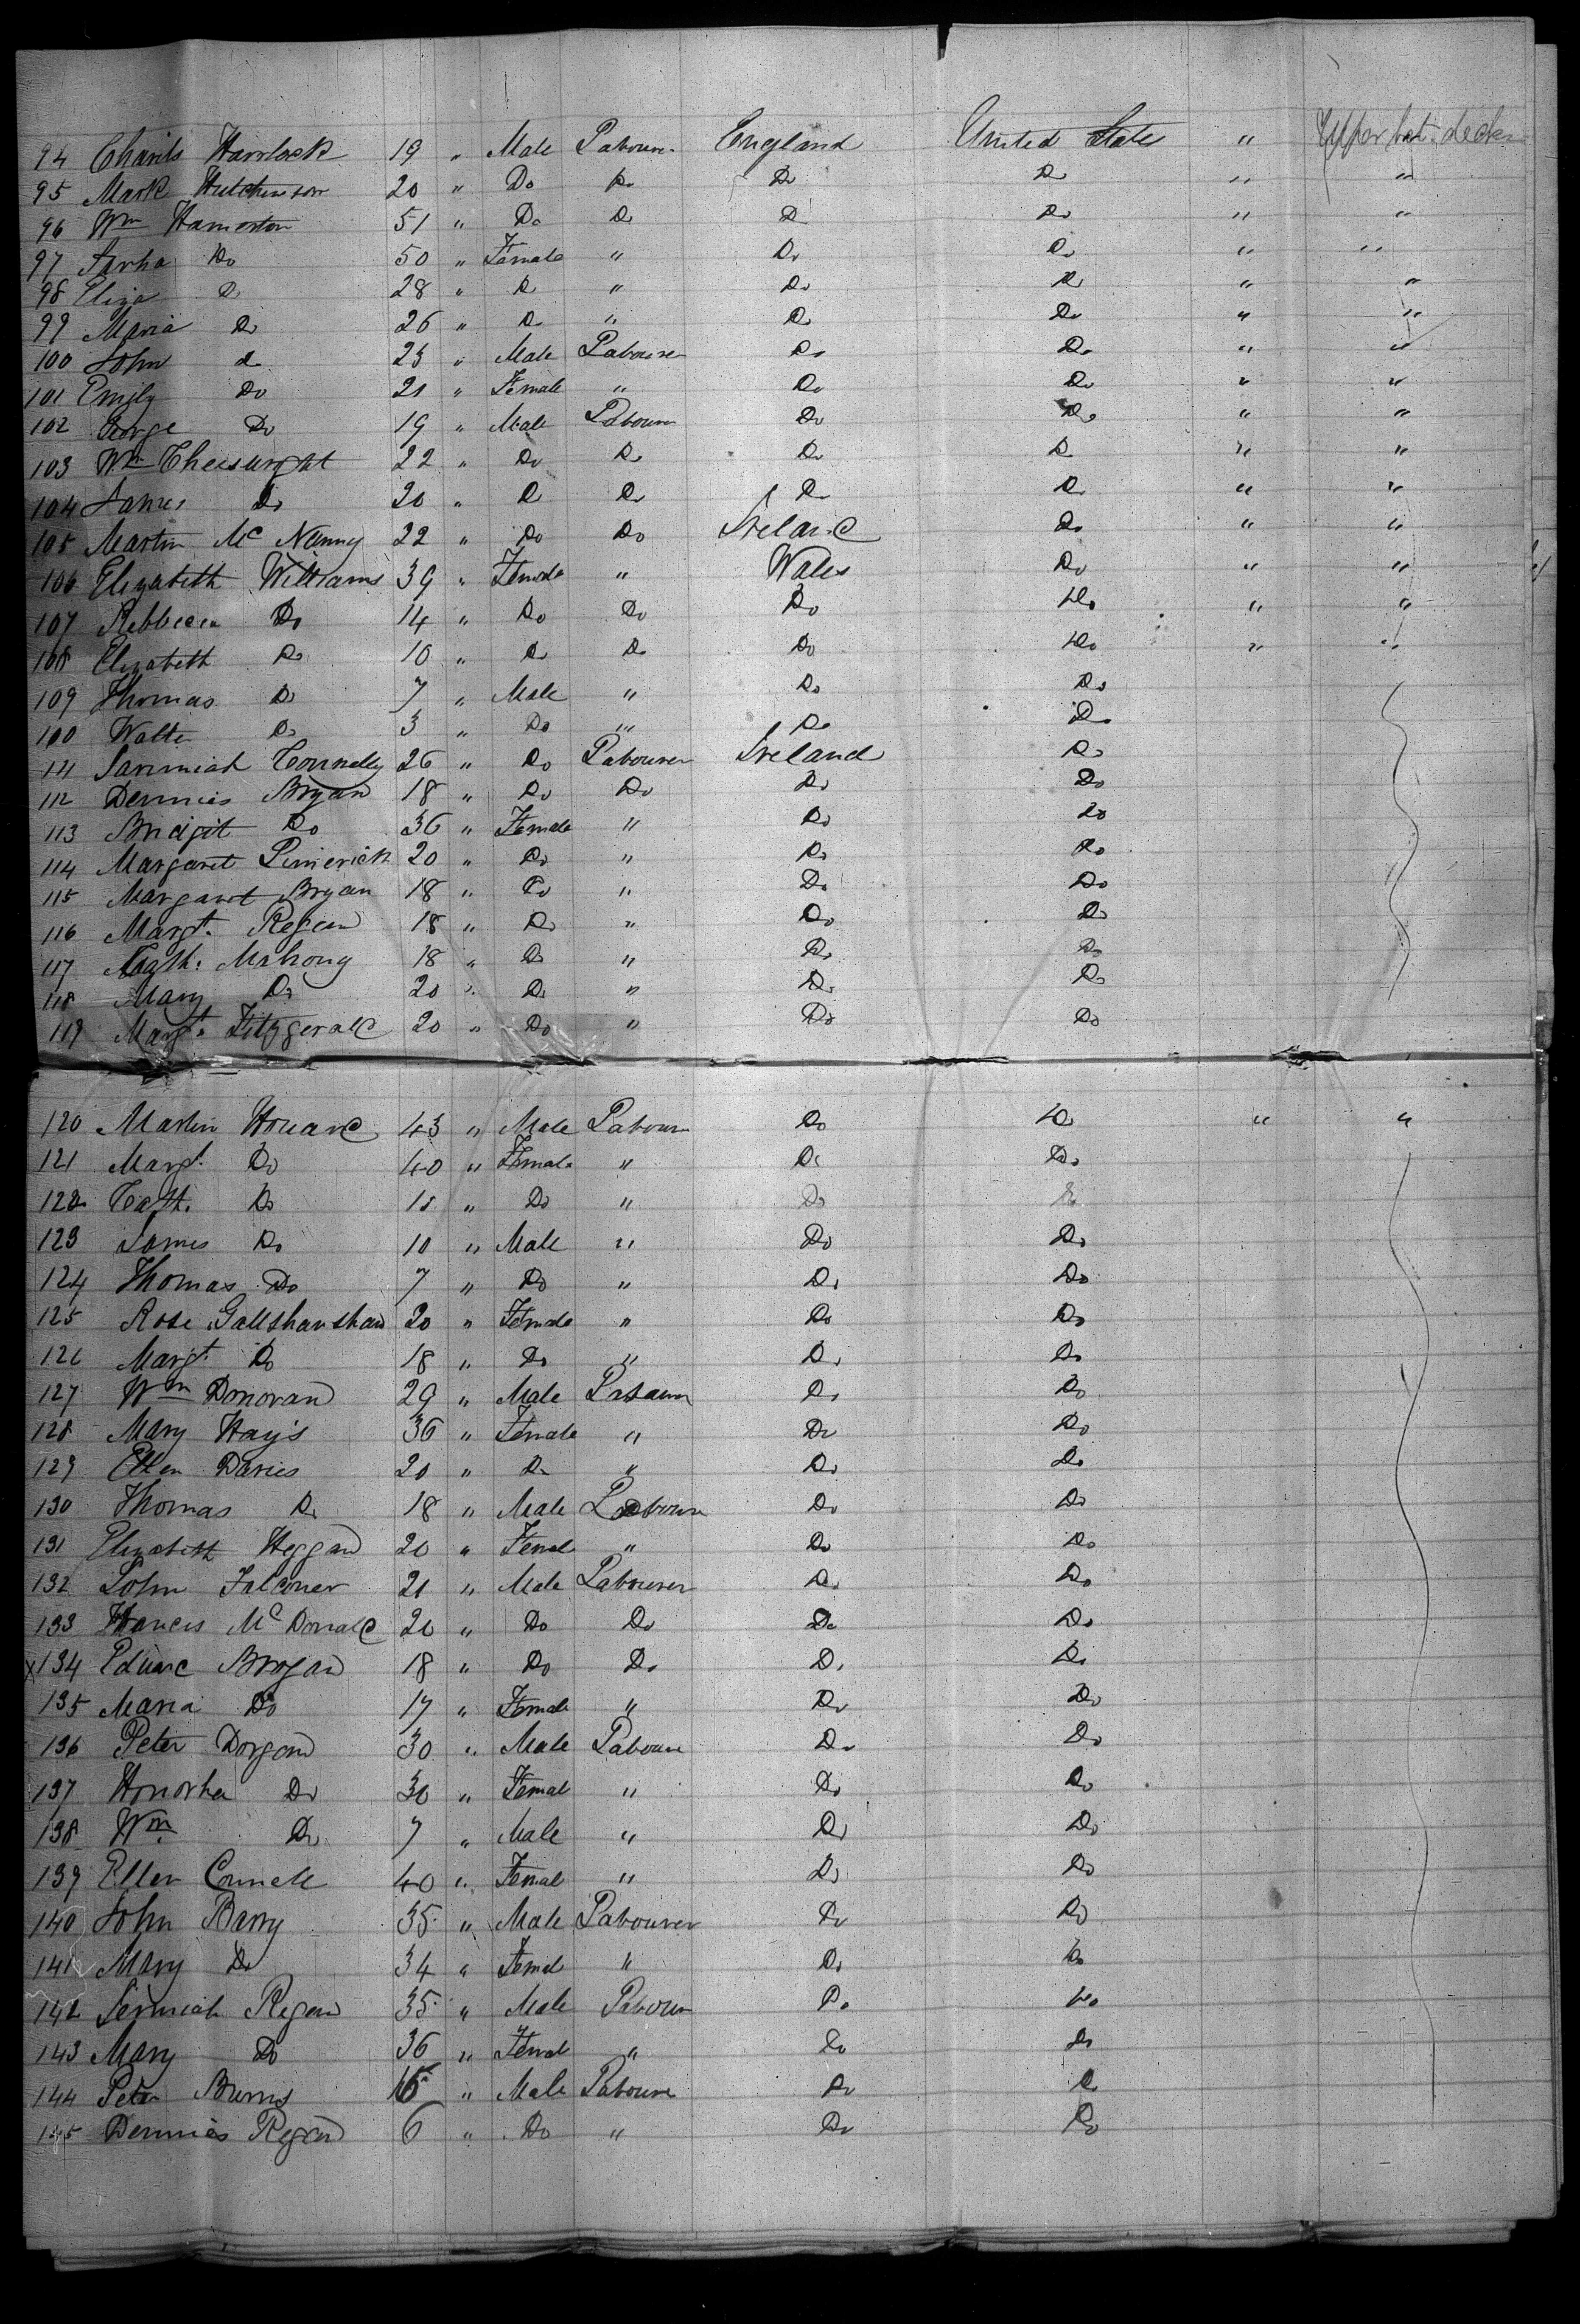 94 Charils Havelock 19 " Male Labourer England United States " Upper bet. deck
95 Mark Hutchinson 20 " Do Do Do Do " "
96 Wm Hamerton 51 " Do Do Do Do " "
97 Sarha Do 50 " Female " Do Do " "
98 Eliza Do 28 " Do " Do Do " "
99 Maria Do 26 " Do " Do Do " "
100 John do 23 " Male Labourer Do Do " "
101 Emily Do 21 " Female " Do Do " "
102 George Do 19 " Male Labourer Do Do " "
103 Wm 22 " Do Do Do Do " "
104 James Do 20 " Do Do Do Do " "
105 Martin Mc Nanny 22 " Do Do Ireland Do " "
106 Elizabeth Williams 39 " Female " Wales Do " "
107 Rebbecca Do 14 " Do Do Do Do " "
108 Elizabeth Do 10 " Do Do Do Do " "
109 Thomas Do 7 " Male " Do Do
110 Walter Do 3 " Do " Do Do
111 Jaremiah Connelly 26 " Do Labourer Ireland Do
112 Dennies Bryan 18 " Do Do Do Do
113 Bridgit Do 36 " Female " Do Do
114 Margaret Limerick 20 " Do " Do Do
115 Margaret Bryan 18 " Do " Do Do
116 Margt. Regan 18 " Do " Do Do
117 Cath. Mahony 18 " Do " Do Do
118 Mary Do 20 " Do " Do Do
119 Margt. Fitzgerald 20 " Do " Do Do
120 Martin Houard 43 " Male Labourer Do Do " "
121 Margt. Do 40 " Female " Do Do
122 Cath. Do 11 " Do " Do Do
123 James Do 10 " Male " Do Do
124 Thomas Do 7 " Do " Do Do
125 Rose Gallshanshan 20 " Female " Do Do
126 Margt. Do 18 " Do " Do Do
127 Wm Donovan 29 " Male Labourer Do Do
128 Mary Hays 36 " Female " Do Do
129 Ellen Davies 20 " Do " Do Do
130 Thomas Do 18 " Male Labourer Do Do
131 Elizabeth Heggan 20 " Femal " Do Do
132 John Falconer 21 " Male Labourer Do Do
133 Francis Mc Donald 20 " Do Do Do Do
x 134 Eduard Brogan 18 " Do Do Do Do
135 Maria Do 17 " Female " Do Do
136 Peter Dorgan 30 " Male Labourer Do Do
137 Honorha Do 30 " Femal " Do Do
138 Wm Do 7 " Male " Do Do
139 Ellen Connell 40 " Femal " Do Do
140 John Barry 35 " Male Labourer Do Do
141 Mary Do 34 " Femal " Do Do
142 Jermiah Regan 35 " Male Labour Do Do
143 Mary Do 36 " Femal " Do Do
144 Peter Burns 16 " Male Laboure Do Do
145 Dennies Regan 6 " Do " Do Do